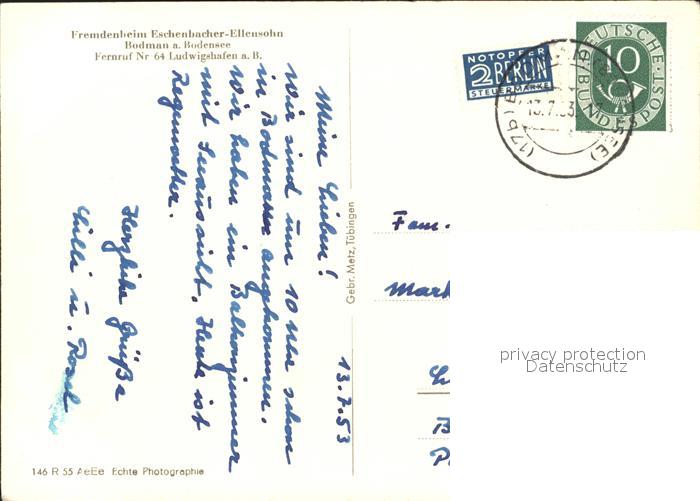 Fremdenheim Eschenbacher-Ellensohn
Bodman a. Bodensee
Fernruf Nr 64 Ludwigshafen a. B.
NOTOPFER
2 BERLIN
STEUERMARKE
DEUTSCHE
BUNDESPOST
10
(17b) B
13.7.53
SEE)
13.7.53
Meine Lieben!
Wir sind um 10 Uhr schon
in Bodman angekommen.
Wir haben ein Balkonzimmer
mit Seeaussicht. Heute ist
Regenwetter.
Herzliche Grüße
Willi u. Rosel
Gebr. Metz, Tübingen
Fam.
Mark
B
146 R 55 AeEe Echte Photographie
privacy protection
Datenschutz